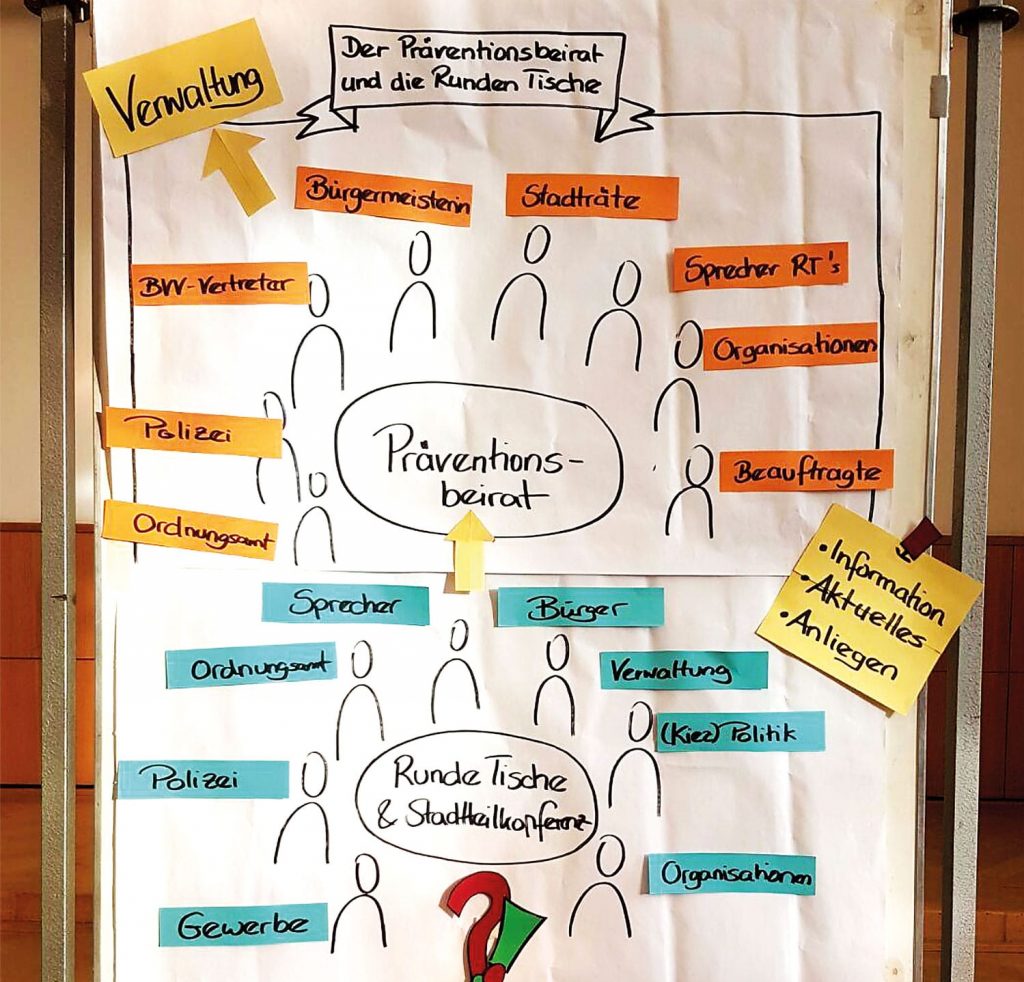 Der Präventionsbeirat
und die Runden Tische
Verwaltung
Bürgermeisterin
Stadträte
BVV-Vertreter
Sprecher RT's
Organisationen
Polizei
Beauftragte
Ordnungsamt
Präventions-
beirat
• Information
• Aktuelles
• Anliegen
Sprecher
Bürger
Ordnungsamt
Verwaltung
(Kiez) Politik
Polizei
Runde Tische
& Stadtteilkonferenz
Organisationen
Gewerbe